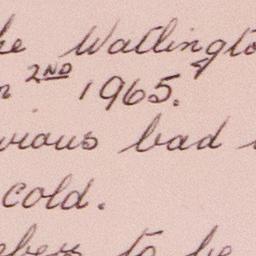 he Watlingto
n 2ND 1965.
vious bad
cold.
ber to be